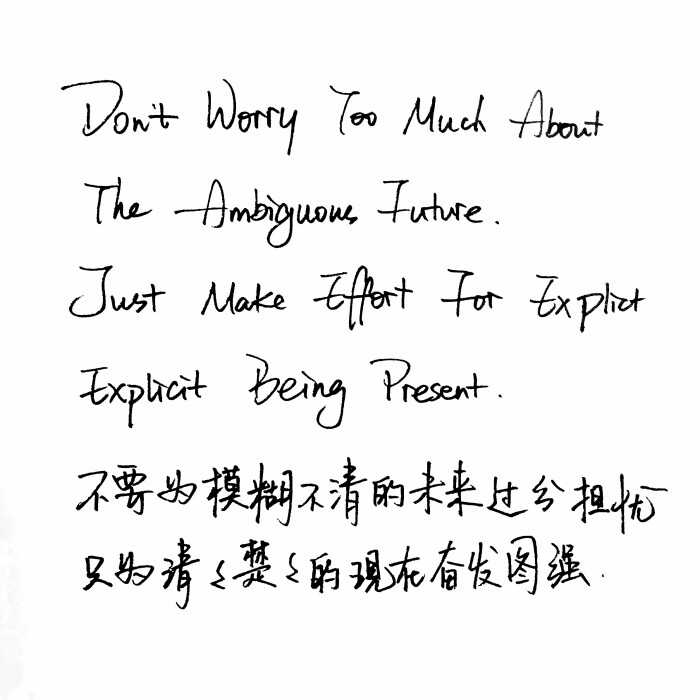 Don't Worry Too Much About
The Ambiguous Future.
Just Make Effort For Explict
Explicit Being Present.
不要为模糊不清的未来过分担忧
只为清々楚々的现在奋发图强.